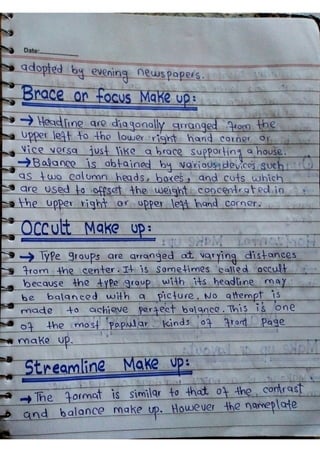 Date:
adopted by evening newspapers.
Brace or focus Make up:
→ Headline are diagonally arranged from the
upper left to the lower right hand corner or
vice versa just like a brace supporting a house.
→ Balance is obtained by various devices such
as two column heads, boxes, and cuts which
are used to offset the weight concentrated in
the upper right or upper left hand corner.
Occult Make up:
→ Type groups are arranged at varying distances
from the center. It is sometimes called occult
because the type group with its headline may
be balanced with a picture. No attempt is
made to achieve perfect balance. This is one
of the most popular kinds of front page
make up.
Streamline Make up:
→ The format is similar to that of the contrast
and balance make up. However the nameplate